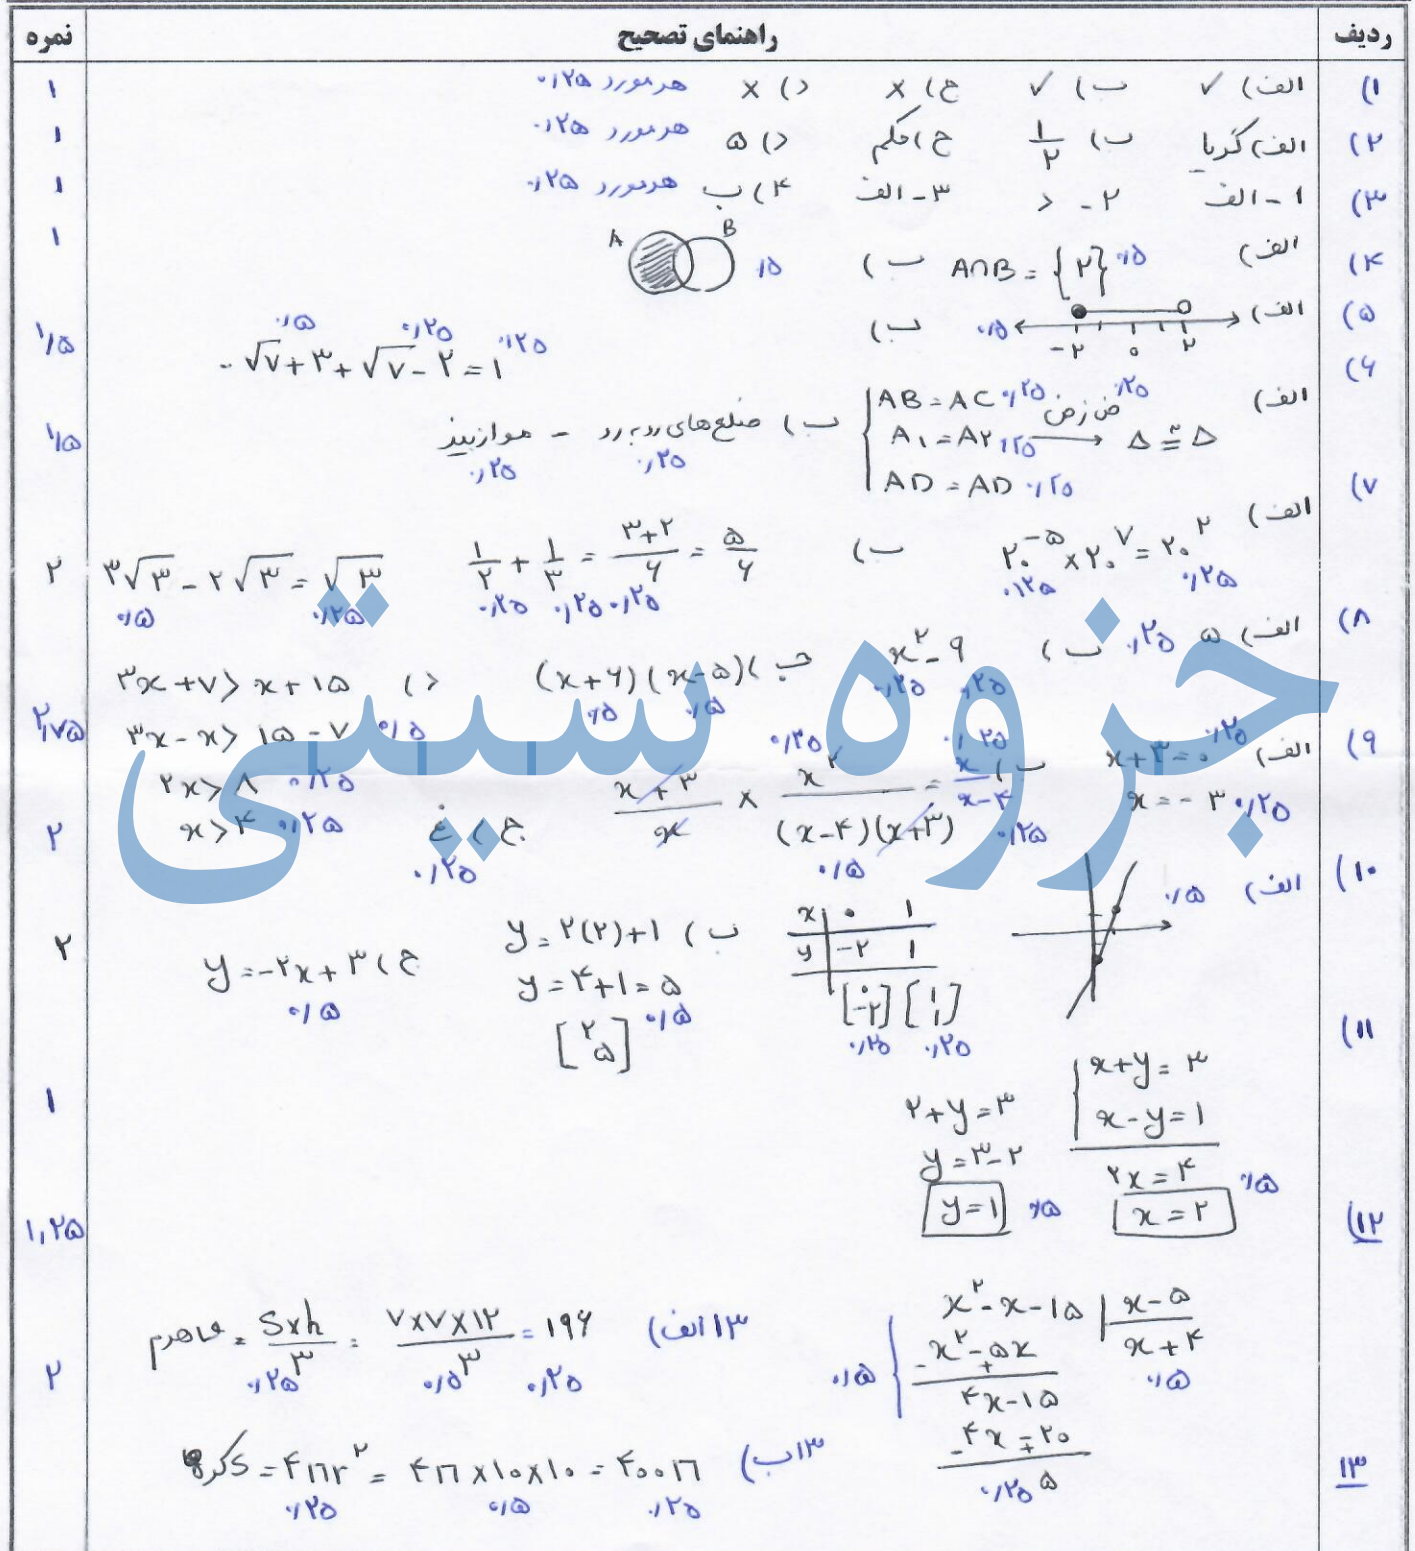 ردیف راهنمای تصحیح نمره
۱) الف) ✓ ب) ✓ ج) × د) × هر مورد ۰/۲۵ ۱
۲) الف) گویا ب) ۱/۲ ج) محکم د) ۵ هر مورد ۰/۲۵ ۱
۳) ۱- الف ۲- > ۳- الف ۴) ب هر مورد ۰/۲۵ ۱
۴) الف) A∩B = {۲} ۰/۵ ب) A B ۰/۵ ۱
۵) الف) -۲ ۰ ۲ ۰/۵ ب) -√۷ + ۳ + √۷ - ۲ = ۱ ۰/۵ ۰/۲۵ ۰/۲۵ ۱/۵
۶) الف) AB = AC ۰/۲۵ ض ز ض ۰/۲۵
A۱ = A۲ ۰/۲۵ → Δ ≅ Δ
AD = AD ۰/۲۵
ب) ضلع‌های روبه‌رو - موازیند ۰/۲۵ ۰/۲۵ ۱/۵
۷) الف) ۲۰^-۵ × ۲۰^۷ = ۲۰^۲ ۰/۲۵ ۰/۲۵
ب) ۱/۲ + ۱/۳ = (۳+۲)/۶ = ۵/۶ ۰/۲۵ ۰/۲۵ ۰/۲۵
۳√۳ - ۲√۳ = √۳ ۰/۵ ۰/۲۵ ۲
۸) الف) ۵ ۰/۲۵ ب) x² - ۹ ۰/۲۵ ۰/۲۵ ج) (x+۶)(x-۵) ۰/۵ ۰/۵
د) ۳x + ۷ > x + ۱۵
۳x - x > ۱۵ - ۷ ۰/۵
۲x > ۸ ۰/۲۵
x > ۴ ۰/۲۵ ۲/۷۵
۹) الف) x + ۳ = ۰ ۰/۲۵
x = -۳ ۰/۲۵
ب) (x+۳)/x × x²/((x-۴)(x+۳)) = x/(x-۴) ۰/۲۵ ۰/۲۵ ۰/۵ ۰/۲۵
ج) غ ۰/۲۵ ۲
۱۰) الف) ۰/۵
x ۰ ۱
y -۲ ۱
[۰ -۲] [۱ ۱] ۰/۲۵ ۰/۲۵
ب) y = ۲(۲)+۱
y = ۴+۱ = ۵
[۲ ۵] ۰/۵
ج) y = -۲x + ۳ ۰/۵ ۲
۱۱) x + y = ۳
x - y = ۱
۲x = ۴
x = ۲ ۰/۵
۲ + y = ۳
y = ۳ - ۲
y = ۱ ۰/۵ ۱
۱۲) x² - x - ۱۵ | x - ۵
-x² - ۵x + x + ۴ ۰/۵
۴x - ۱۵ ۰/۵
-۴x - ۲۰ +
۵ ۰/۲۵ ۱,۲۵
۱۳ الف) هرم = S×h/۳ = ۷×۷×۱۲/۳ = ۱۹۶ ۰/۲۵ ۰/۵ ۰/۲۵ ۲
۱۳ ب) S کره = ۴πr² = ۴π×۱۰×۱۰ = ۴۰۰π ۰/۲۵ ۰/۵ ۰/۲۵
۱۳
جزوه سیتی